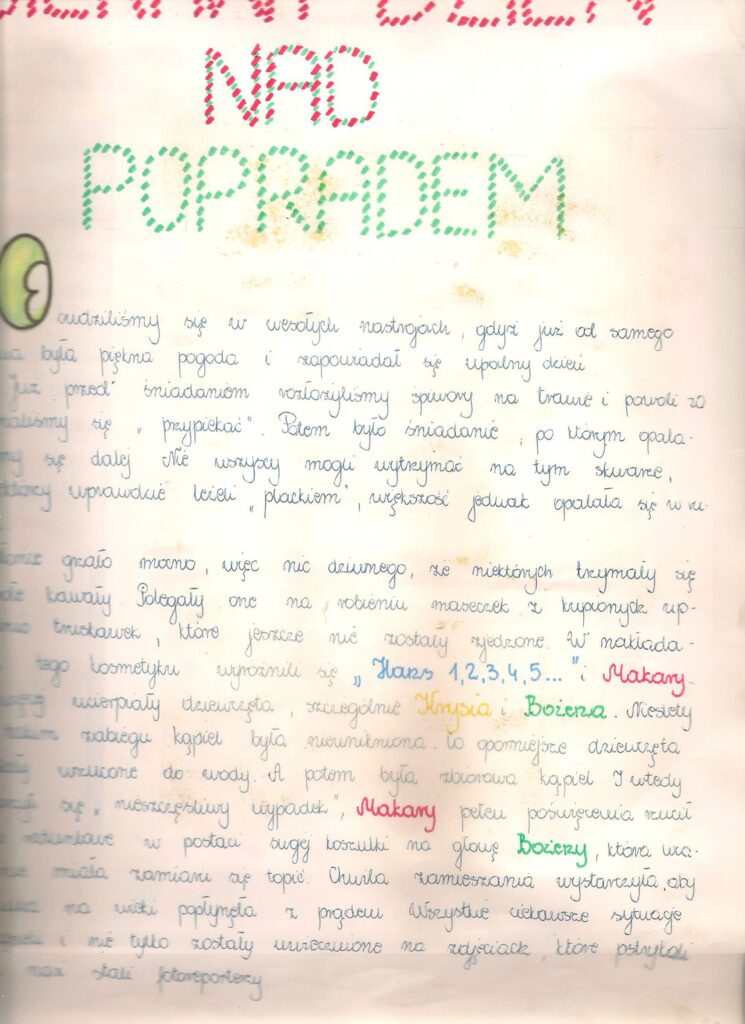 NAD
POPRADEM
Obudziliśmy się w wesołych nastrojach, gdyż już od samego
była piękna pogoda i zapowiadał się upalny dzień
Już przed śniadaniem rozłożyliśmy śpiwory na trawie i powoli za
się "przypiekać". Potem było śniadanie, po którym opala-
się dalej Nie wszyscy mogli wytrzymać na tym skwarze,
wprawdzie leżeli "plackiem", większość jednak opalała się w ru-
grało mocno, więc nic dziwnego, że niektórych trzymały się
kawały. Polegały one na robieniu maseczek z kupionych up-
truskawek, które jeszcze nie zostały zjedzone. W nakłada-
tego kosmetyku wyróżnili się "Hars 1,2,3,4,5..." i Makary.
ucierpiały dziewczęta, szczególnie Krysia i Bożena. Niestety
zabiegu kąpiel była nieunikniona. Co oporniejsze dziewczęta
wrzucone do wody. A potem była zbiorowa kąpiel. I wtedy
się "nieszczęśliwy wypadek", Makary pełen poświęcenia rzucił
ratunkowe w postaci swojej koszulki na głowę Bożeny, która wca-
nie miała zamiaru się topić. Chwila zamieszania wystarczyła, aby
na wieki popłynęła z prądem Wszystkie ciekawsze sytuacje
i nie tylko zostały uwiecznione na zdjęciach, które pstrykali
nasi stali fotoreporterzy